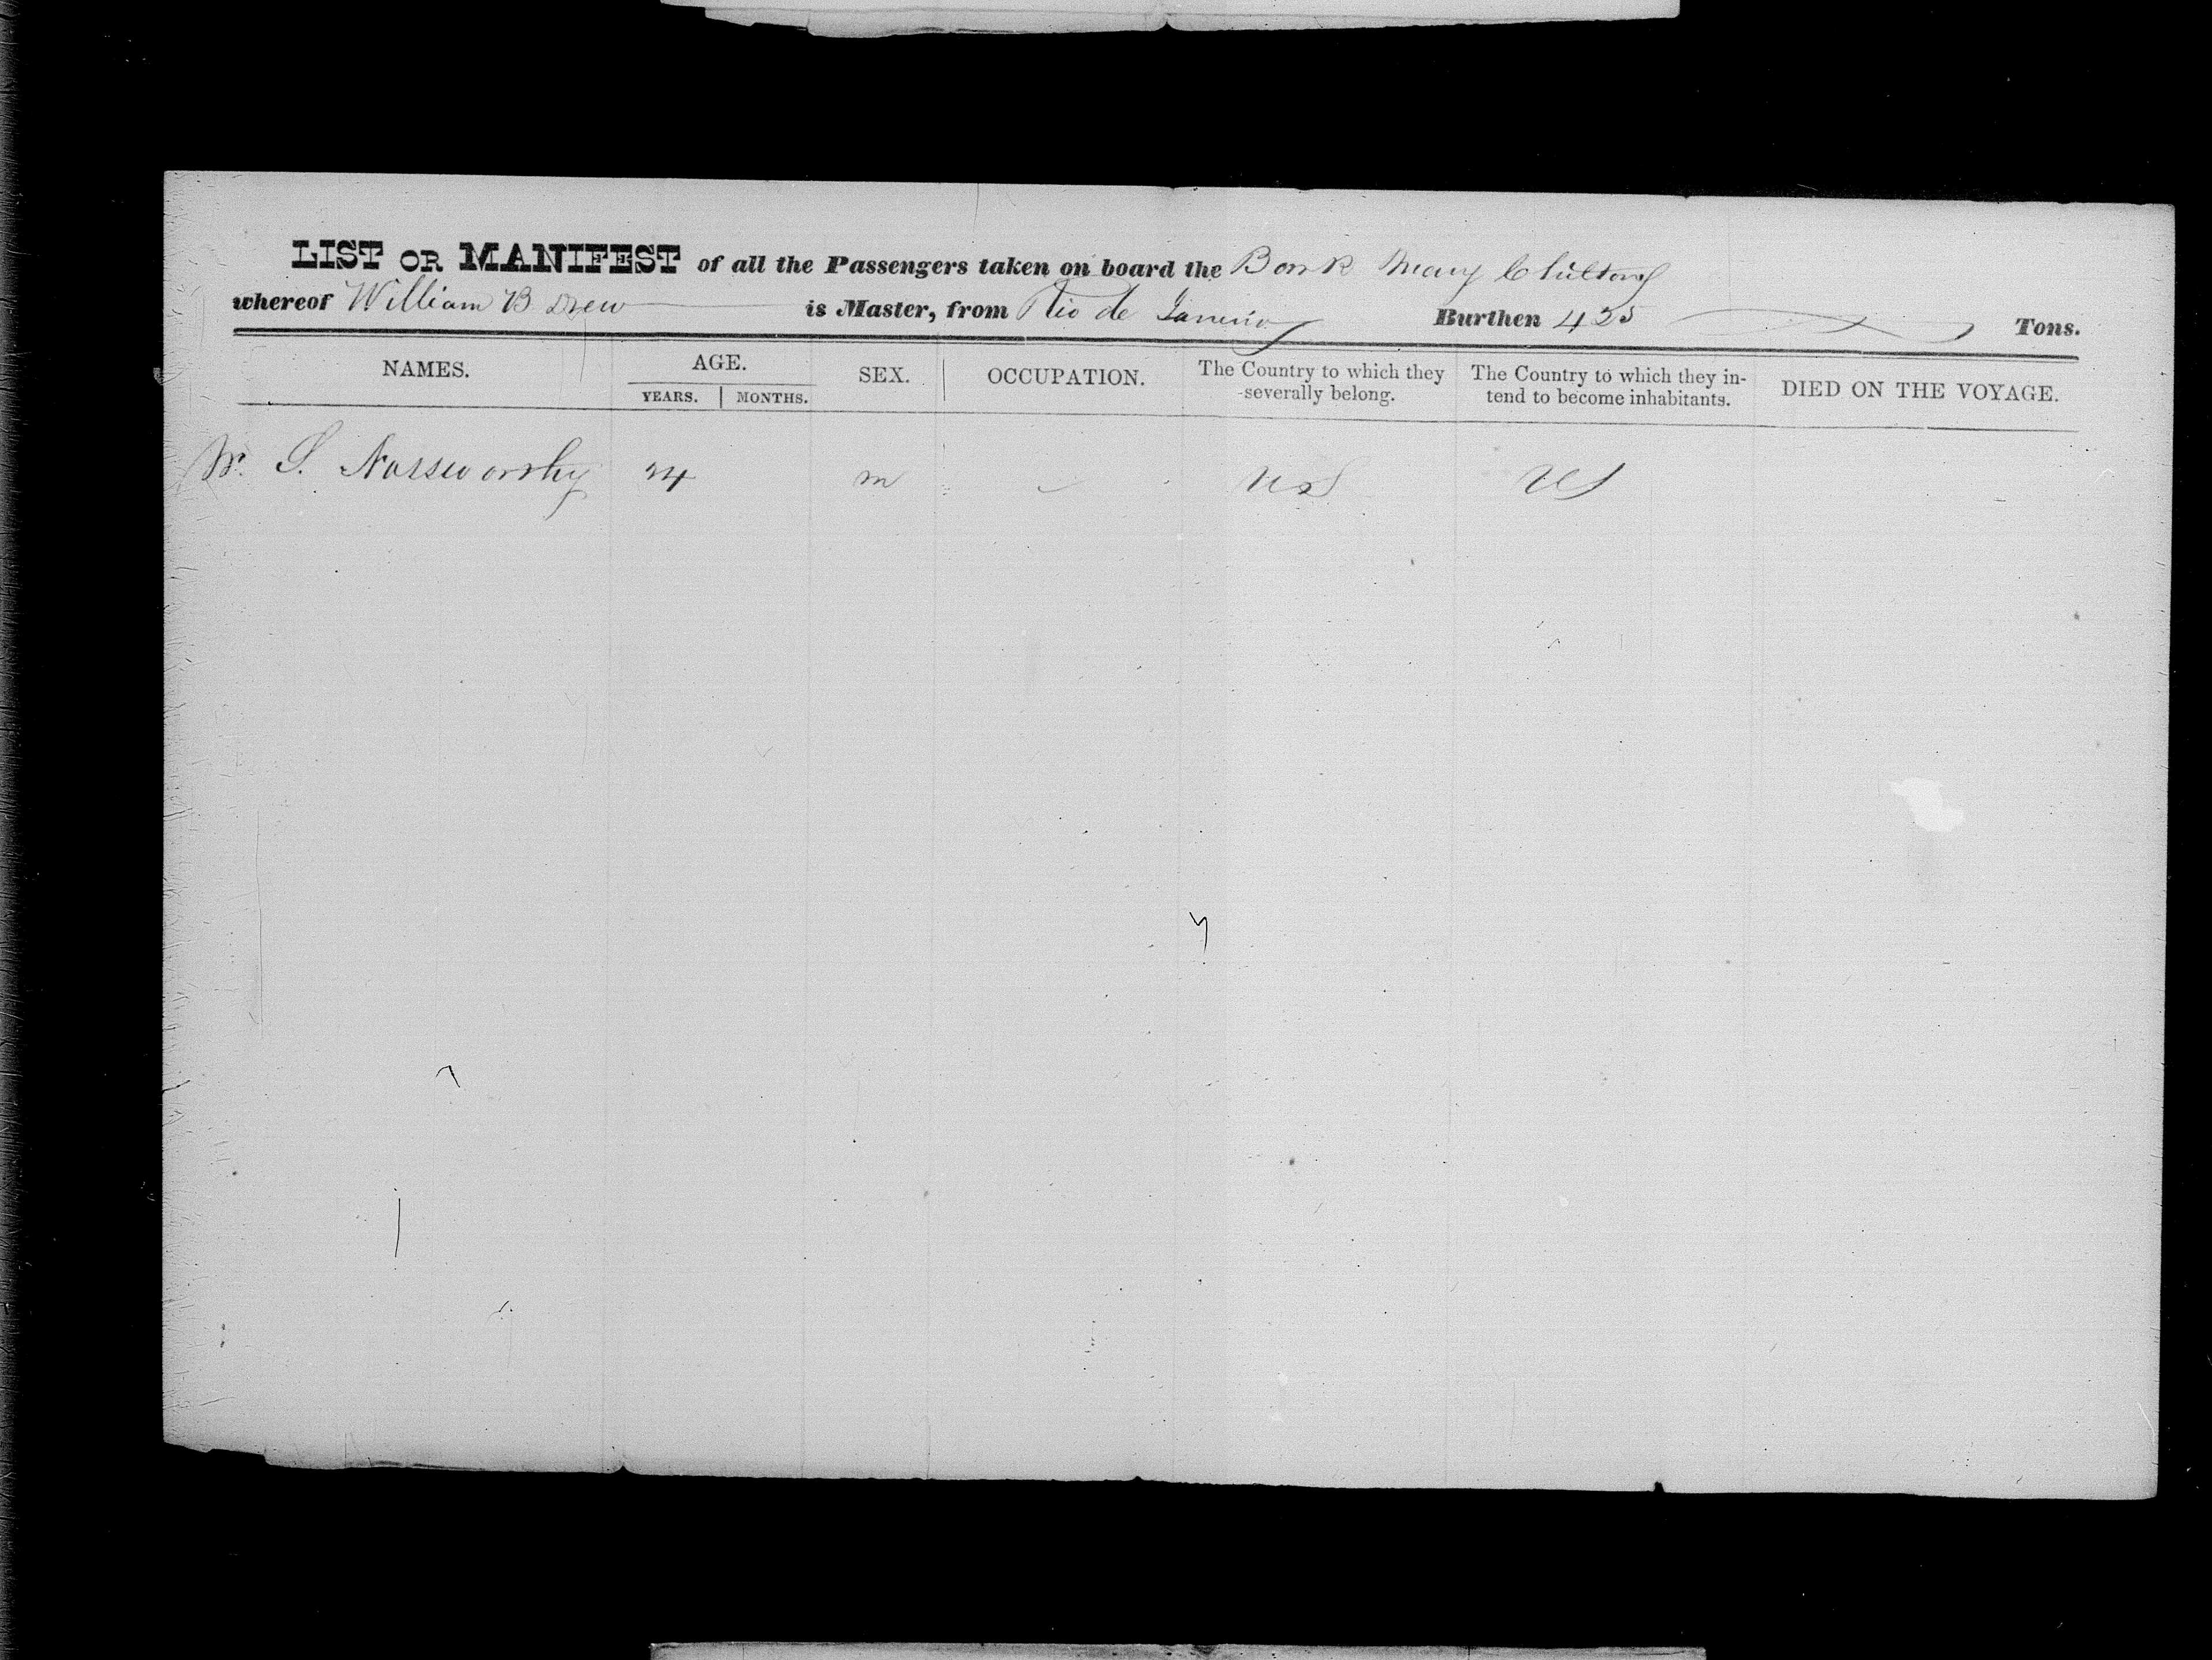 LIST OR MANIFEST of all the Passengers taken on board the Bark Mary Chilton
whereof William B. Drew is Master, from Rio de Janeiro Burthen 425 Tons.
NAMES. AGE. SEX. OCCUPATION. The Country to which they severally belong. The Country to which they intend to become inhabitants. DIED ON THE VOYAGE.
YEARS. MONTHS.
W. S. Nassworthy 24 m US US